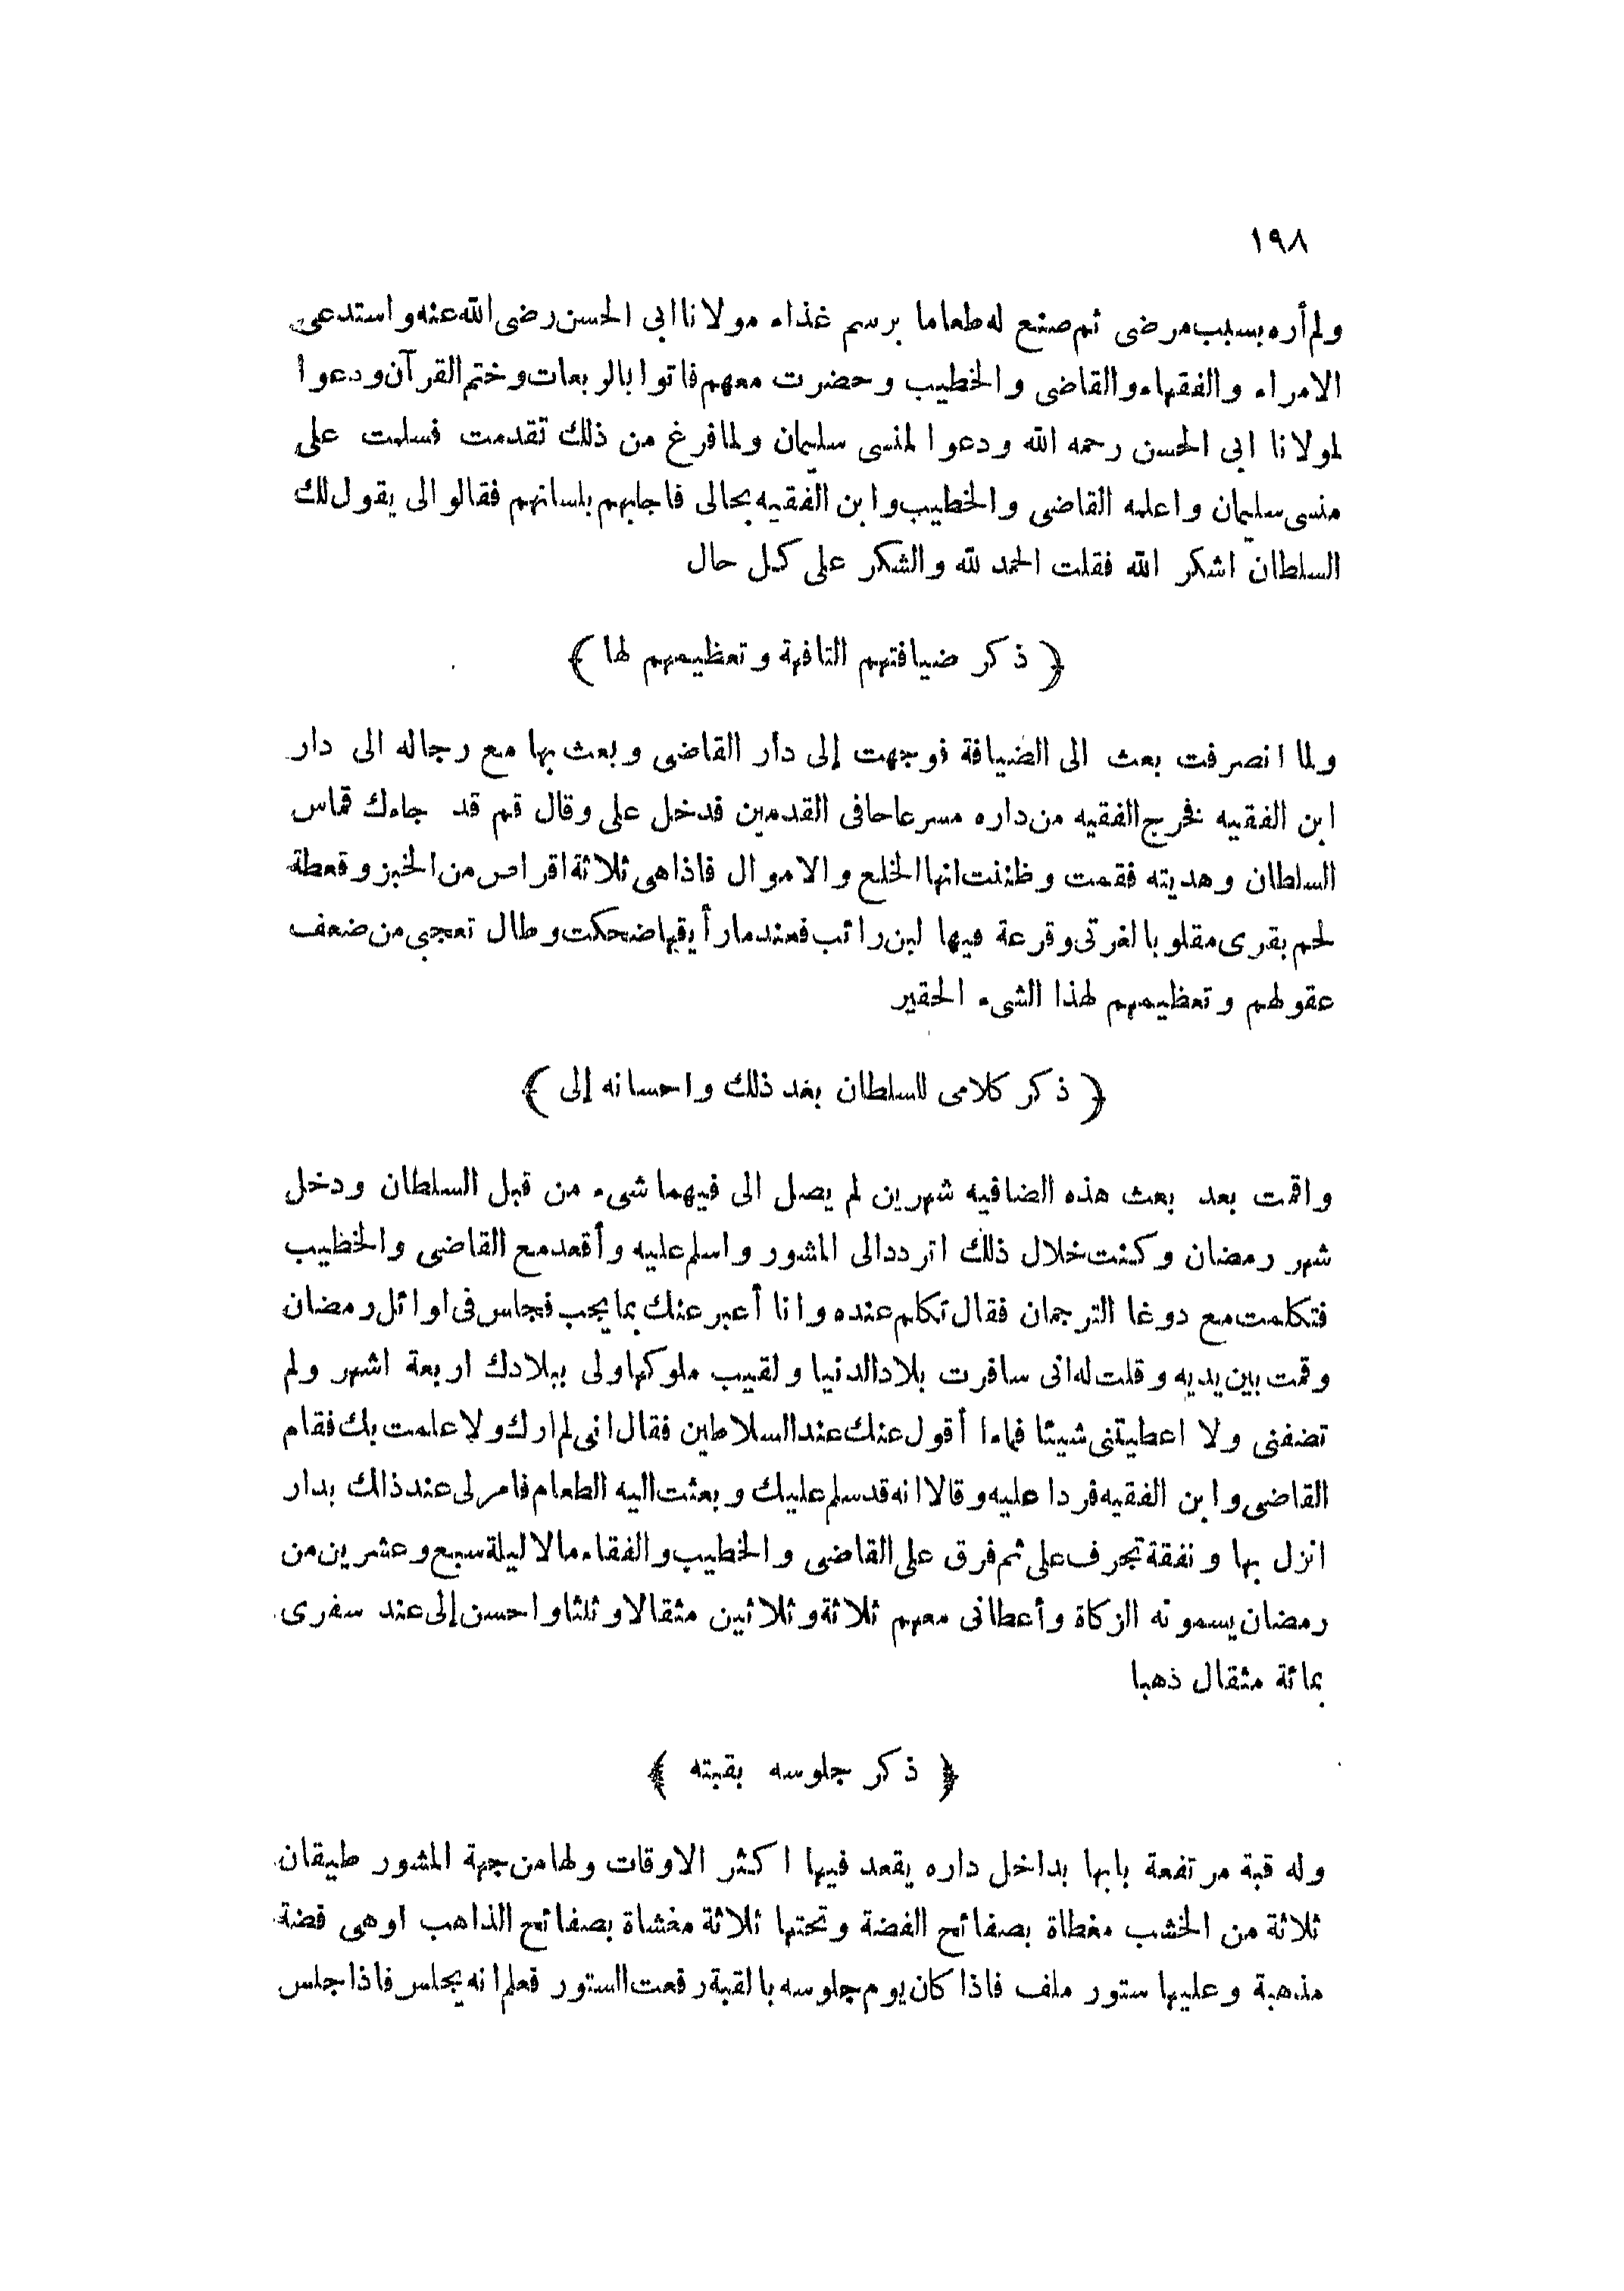 ١٩٨
ولم أره بسبب مرضى ثم صنع له طعاما برسم غذاء مولانا ابى الحسن رضى الله عنه واستدعى
الامراء والفقهاء والقاضى والخطيب وحضرت معهم فاتوا بالربعات وختم القرآن ودعوا
لمولانا ابى الحسن رحمه الله ودعوا لمنسى سليمان ولما فرغ من ذلك تقدمت فسلمت على
منسى سليمان واعلمه القاضى والخطيب وابن الفقيه بحالى فاجابهم بلسانهم فقالوا لى يقول لك
السلطان اشكر الله فقلت الحمد لله والشكر على كل حال
﴿ ذكر ضيافتهم التافهة وتعظيمهم لها ﴾
ولما انصرفت بعث الى الضيافة فوجهت إلى دار القاضى وبعث بها مع رجاله الى دار
ابن الفقيه فخرج الفقيه من داره مسرعا حافى القدمين فدخل على وقال قم قد جاءك قماش
السلطان وهديته فقمت وظننت انها الخلع والاموال فاذا هى ثلاثة اقراص من الخبز وقعطة
لحم بقرى مقلو بالغرتى وقرعة فيها لبن رائب فعندما رأيقها ضحكت وطال تعجبى من ضعف
عقولهم وتعظيمهم لهذا الشىء الحقير
﴿ ذكر كلامى للسلطان بعد ذلك واحسانه إلى ﴾
واقمت بعد بعث هذه الضافيه شهرين لم يصل الى فيهما شىء من قبل السلطان ودخل
شهر رمضان وكنت خلال ذلك اتردد الى المشور واسلم عليه وأقعد مع القاضى والخطيب
فتكلمت مع دوغا الترجمان فقال تكلم عنده وانا أعبر عنك بما يجب فجلس فى اوائل رمضان
وقمت بين يديه وقلت له انى سافرت بلاد الدنيا ولقيب ملوكها ولى ببلادك اربعة اشهر ولم
تضفنى ولا اعطيتنى شيئا فماءا أقول عنك عند السلاطين فقال انى لم ارك ولا علمت بك فقام
القاضى وابن الفقيه فردا عليه وقالا انه قد سلم عليك وبعثت اليه الطعام فامر لى عند ذالك بدار
انزل بها ونفقة تجرف على ثم فرق على القاضى والخطيب والفقاء مالا ليلة سبع وعشرين من
رمضان يسمونه الزكاة وأعطانى معهم ثلاثة وثلاثين مثقالا وثلثا واحسن إلى عند سفرى
بمائة مثقال ذهبا
﴿ ذكر جلوسه بقبته ﴾
وله قبة مرتفعة بابها بداخل داره يقعد فيها اكثر الاوقات ولها من جهة المشور طيقان
ثلاثة من الخشب مغطاة بصفائح الفضة وتحتها ثلاثة مغشاة بصفائح الذاهب اوهى فضة
مذهبة وعليها ستور ملف فاذا كان يوم جلوسه بالقبة رقعت الستور فعلم انه يجلس فاذا جلس